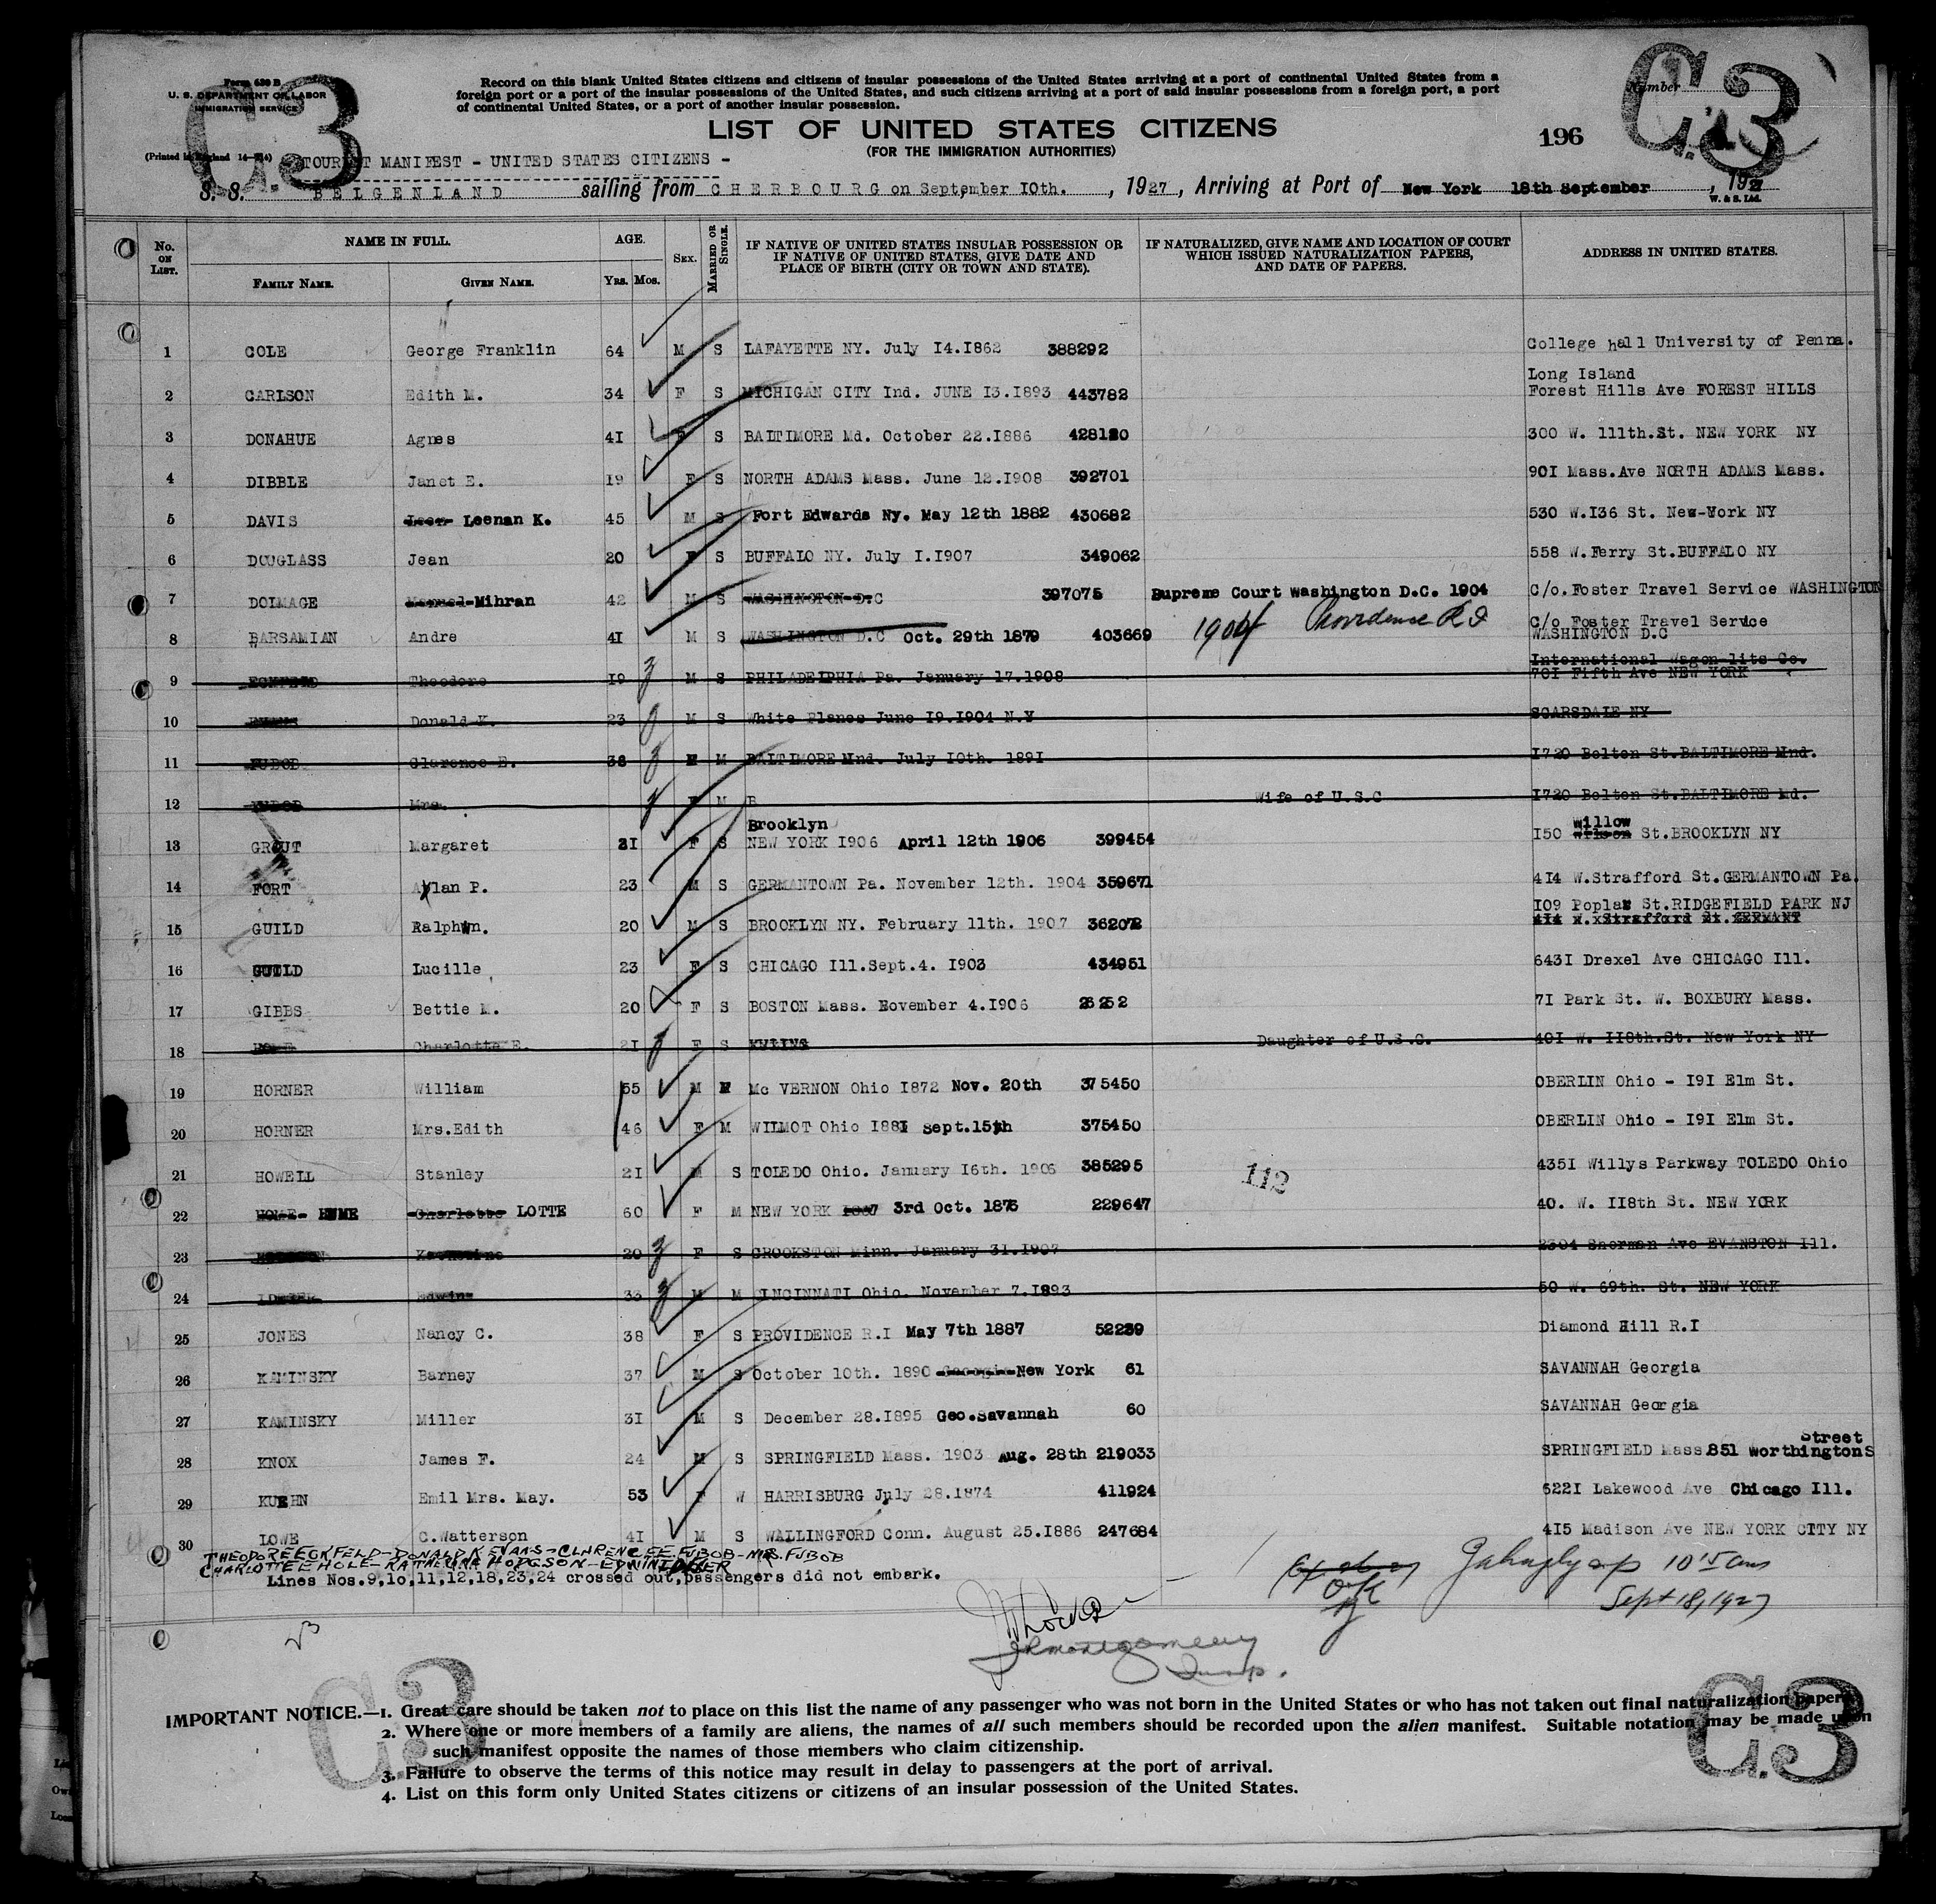 Form 630 B
U. S. DEPARTMENT OF LABOR
IMMIGRATION SERVICE
(Printed in England 14-
C3
Record on this blank United States citizens and citizens of insular possessions of the United States arriving at a port of continental United States from a
foreign port or a port of the insular possessions of the United States, and such citizens arriving at a port of said insular possessions from a foreign port, a port
of continental United States, or a port of another insular possession.
Number
C3
LIST OF UNITED STATES CITIZENS
(FOR THE IMMIGRATION AUTHORITIES)
196
- TOURIST MANIFEST - UNITED STATES CITIZENS -
S. S. BELGENLAND sailing from CHERBOURG on September 10th. , 1927 , Arriving at Port of New York 18th September , 1927
W. & S. Ltd.
No. ON LIST.
NAME IN FULL.
FAMILY NAME. GIVEN NAME.
AGE.
YRS. MOS.
SEX.
MARRIED OR SINGLE.
IF NATIVE OF UNITED STATES INSULAR POSSESSION OR
IF NATIVE OF UNITED STATES, GIVE DATE AND
PLACE OF BIRTH (CITY OR TOWN AND STATE).
IF NATURALIZED, GIVE NAME AND LOCATION OF COURT
WHICH ISSUED NATURALIZATION PAPERS,
AND DATE OF PAPERS.
ADDRESS IN UNITED STATES.
1 COLE George Franklin 64 M S LAFAYETTE NY. July I4.I862 388292 College hall University of Penna.
2 CARLSON Edith M. 34 F S MICHIGAN CITY Ind. JUNE I3.I893 443782 Long Island
Forest Hills Ave FOREST HILLS
3 DONAHUE Agnes 4I F S BALTIMORE Md. October 22.I886 428120 300 W. 111th.St. NEW YORK NY
4 DIBBLE Janet E. I9 F S NORTH ADAMS Mass. June 12.I908 392701 90I Mass.Ave NORTH ADAMS Mass.
5 DAVIS Leenan K. 45 M S Fort Edwards Ny. May 12th 1882 430682 530 W.I36 St. New-York NY
6 DOUGLASS Jean 20 F S BUFFALO NY. July I.I907 349062 558 W.Ferry St.BUFFALO NY
7 DOLMAGE Mihran 42 M S WASHINGTON D.C 397075 Supreme Court Washington D.C. 1904 C/o.Foster Travel Service WASHINGTON
8 BARSAMIAN Andre 4I M S WASHINGTON D.C Oct. 29th 1879 403669 1904 Providence R I C/o Foster Travel Service
WASHINGTON D.C
9 Theodore I9 M S PHILADELPHIA Pa. January 17.1908 International Wagon-lits Co.
70I Fifth Ave NEW YORK
10 Donald K. 23 M S White Planes June I9.I904 N.Y SCARSDALE NY
11 FUBOB Clarence E. 36 M BALTIMORE Mnd. July 10th. 189I I720 Bolton St.BALTIMORE Mnd.
12 Mrs. F M B Wife of U.S.C I720 Bolton St.BALTIMORE Md.
13 GROUT Margaret 2I F S Brooklyn
NEW YORK I906 April 12th 1906 399454 I50 willow St.BROOKLYN NY
14 FORT Allan P. 23 M S GERMANTOWN Pa. November 12th. 1904 359671 4I4 W.Strafford St.GERMANTOWN Pa.
15 GUILD Ralph 20 M S BROOKLYN NY. February 11th. 1907 362072 I09 Poplar St.RIDGEFIELD PARK NJ
414 W. Strafford St. GERMANT
16 GUILD Lucille 23 F S CHICAGO Ill.Sept.4. I903 434951 643I Drexel Ave CHICAGO Ill.
17 GIBBS Bettie M. 20 F S BOSTON Mass. November 4.I906 26252 7I Park St. W. BOXBURY Mass.
18 Charlotte E. 2I F S Daughter of U.S.C. 40I W. II8th.St. New York NY
19 HORNER William 55 M M Mc VERNON Ohio I872 Nov. 20th 375450 OBERLIN Ohio - I9I Elm St.
20 HORNER Mrs.Edith 46 F M WILMOT Ohio I88I Sept.15th 375450 OBERLIN Ohio - I9I Elm St.
21 HOWELL Stanley 2I M S TOLEDO Ohio. January I6th. 1906 385295 112 435I Willys Parkway TOLEDO Ohio
22 HOWE- HUME Charlotte LOTTE 60 F M NEW YORK 3rd Oct. 1876 229647 40. W. II8th St. NEW YORK
23 Katherine 20 F S CROOKSTON Minn. January 31.I907 2304 Sherman Ave EVANSTON Ill.
24 Edwin 33 M M CINCINNATI Ohio. November 7.I893 50 W. 69th. St. NEW YORK
25 JONES Nancy C. 38 F S PROVIDENCE R.I May 7th 1887 52239 Diamond Hill R.I
26 KAMINSKY Barney 37 M S October 10th. 1890 Georgia New York 61 SAVANNAH Georgia
27 KAMINSKY Miller 3I M S December 28.I895 Geo.Savannah 60 SAVANNAH Georgia
28 KNOX James F. 24 M S SPRINGFIELD Mass. 1903 Aug. 28th 219033 SPRINGFIELD Mass 851 Worthingtons Street
29 KUEHN Emil Mrs. May. 53 F W HARRISBURG July 28.1874 411924 622I Lakewood Ave Chicago Ill.
30 LOWE C.Watterson 4I M S WALLINGFORD Conn. August 25.I886 247684 4I5 Madison Ave NEW YORK CITY NY
THEODORE ECKFELD-DONALD K EVANS-CLARENCE E. FUBOB-MRS. FUBOB
CHARLOTTE E HOLE-KATHERINE HODGSON-EDWIN IDLER
Lines Nos.9,10,11,12,18,23,24 crossed out,passengers did not embark.
OK
10 15 am
Sept 18, 1927
JRMontgomery
Insp.
C3
C3
IMPORTANT NOTICE.—1. Great care should be taken not to place on this list the name of any passenger who was not born in the United States or who has not taken out final naturalization papers.
2. Where one or more members of a family are aliens, the names of all such members should be recorded upon the alien manifest. Suitable notation may be made upon
such manifest opposite the names of those members who claim citizenship.
3. Failure to observe the terms of this notice may result in delay to passengers at the port of arrival.
4. List on this form only United States citizens or citizens of an insular possession of the United States.